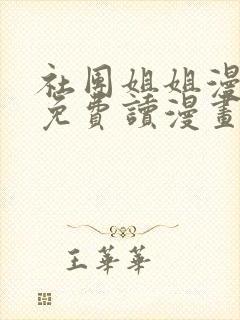 社团姐姐漫
免費讀漫畫
王華華